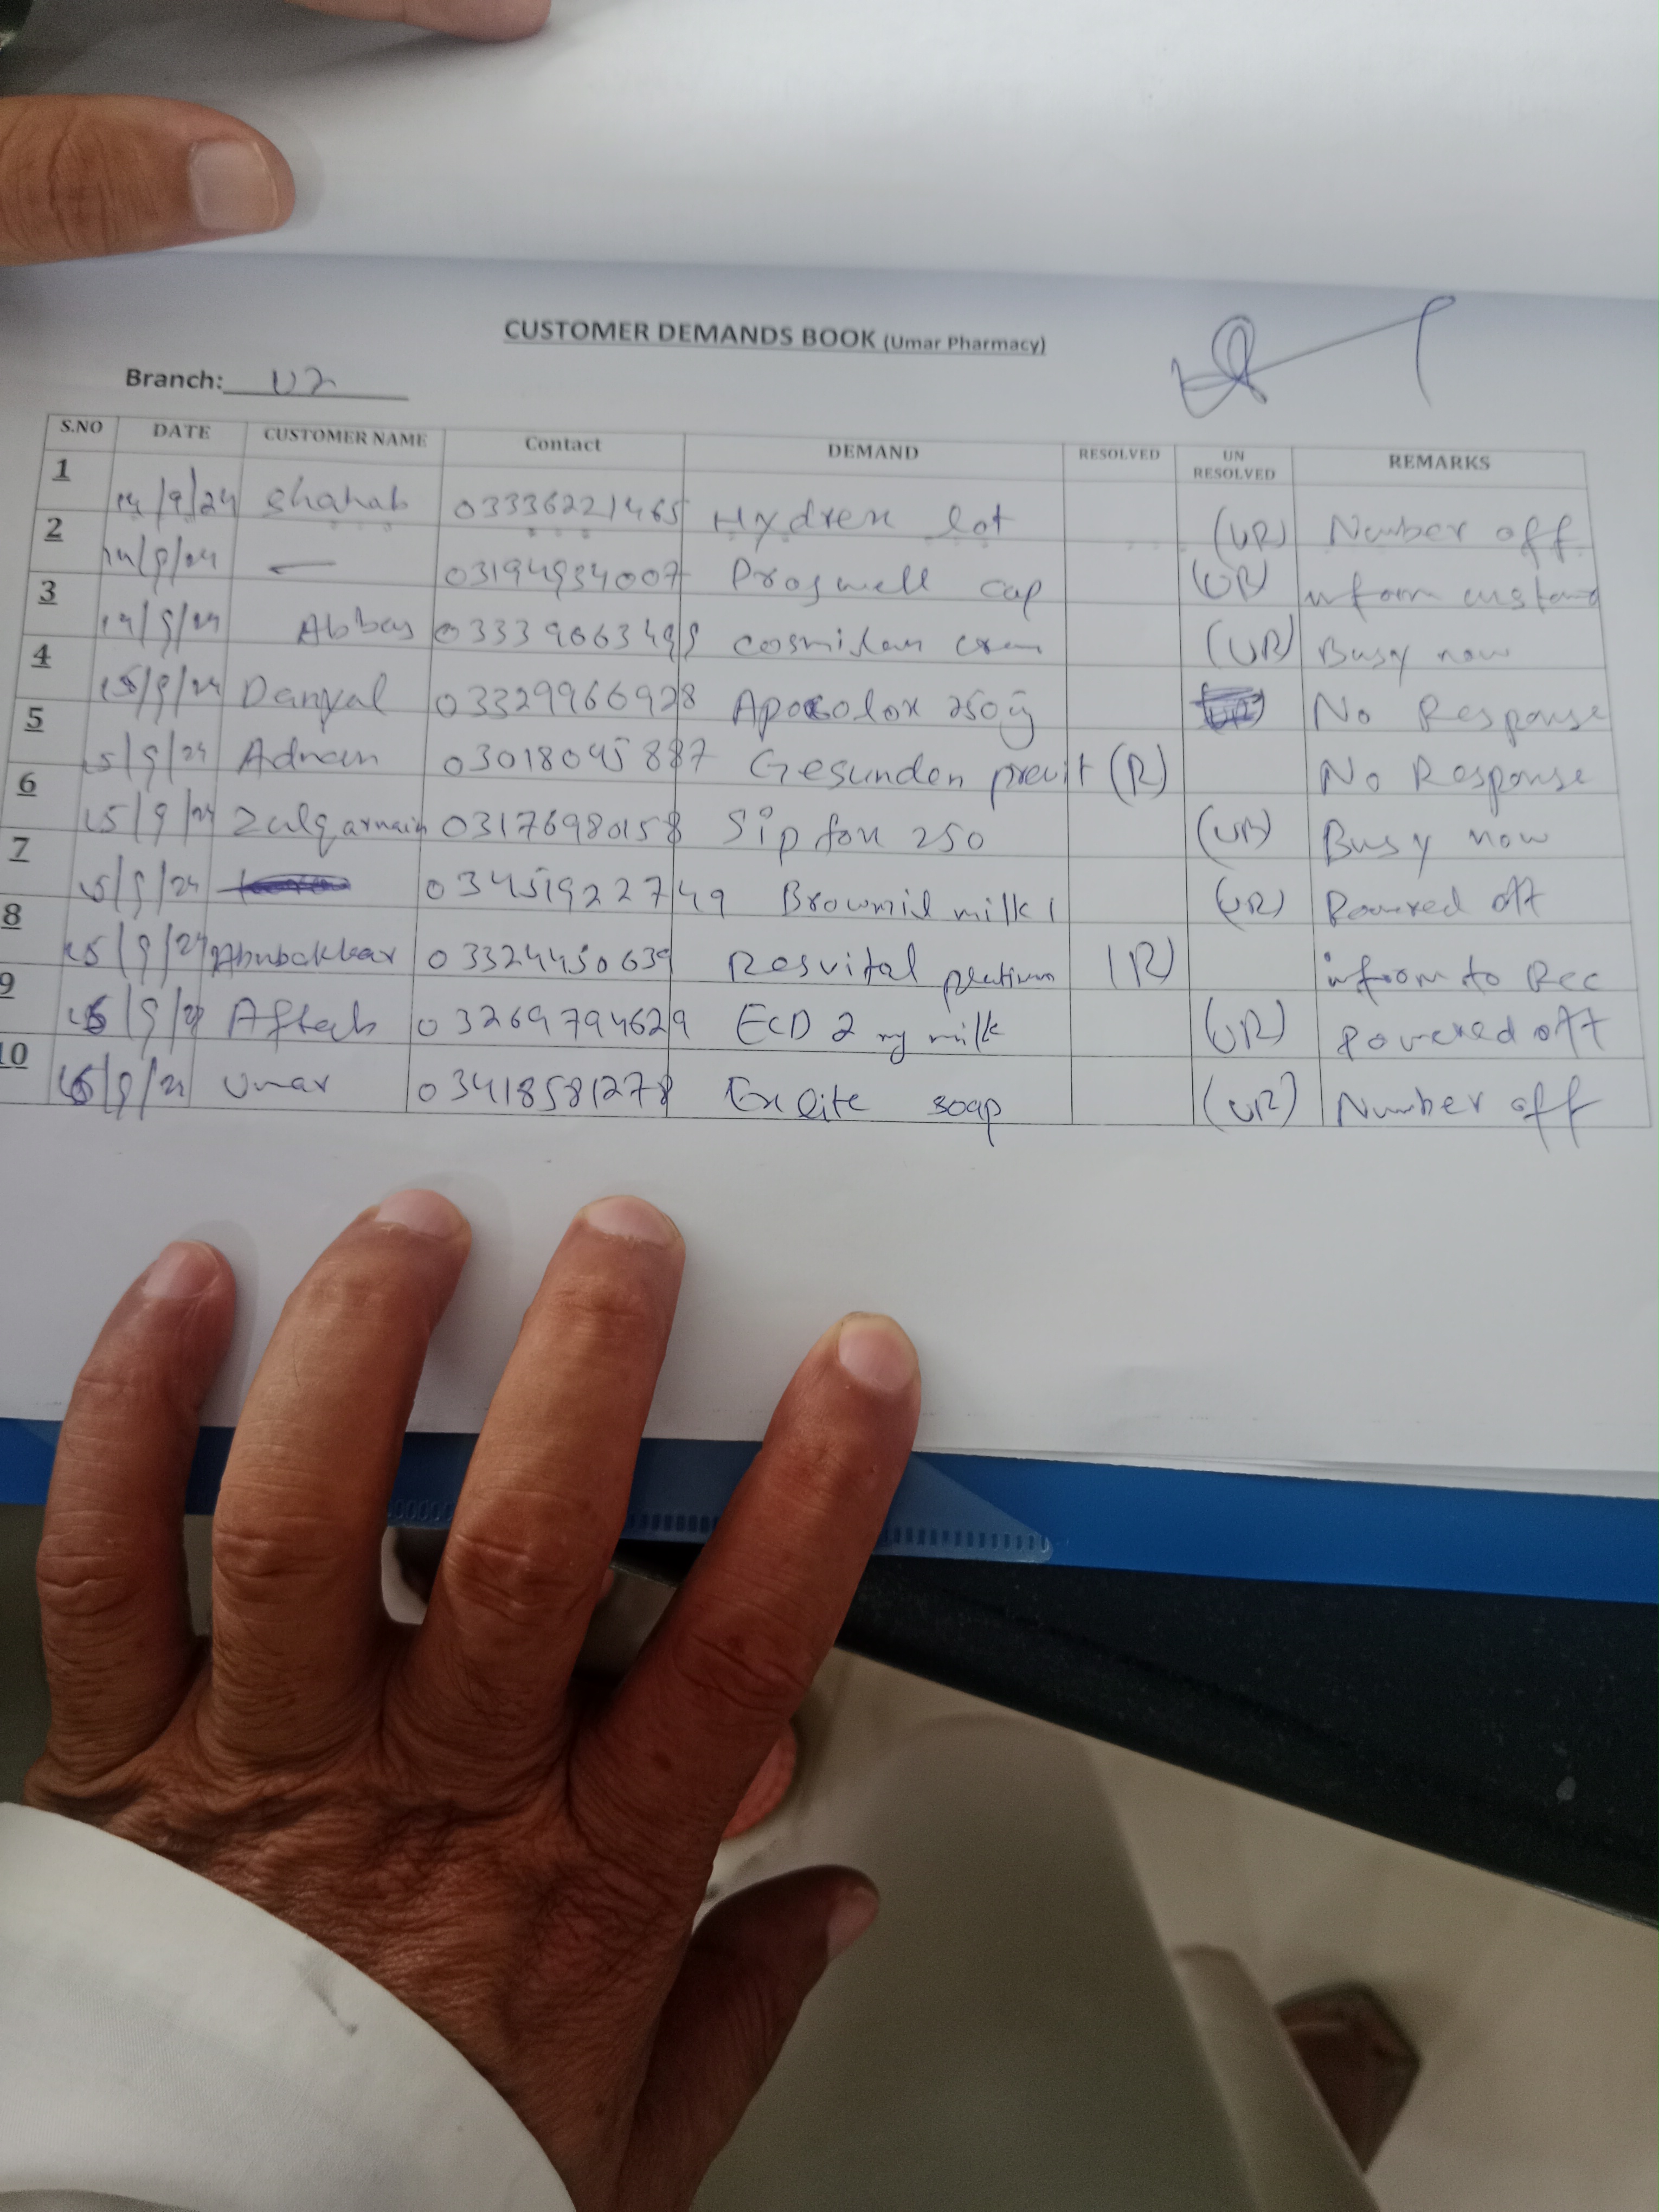 CUSTOMER DEMANDS BOOK (Umar Pharmacy)
Branch: U2
S.NO DATE CUSTOMER NAME Contact DEMAND RESOLVED UN RESOLVED REMARKS
1 14/9/24 Shahab 03336221465 Hydren lot (UR) Number off
2 14/9/24 — 03194934007 Progwell cap (UR) inform
3 14/9/24 Abbas 03339063499 (UR) Busy now
4 15/9/24 Danyal 03329966928 250g No Response
5 15/9/24 Adnan 03018045887 Gesunden previt (R) No Response
6 15/9/24 Zulqarnain 03176980158 Sipfon 250 (UR) Busy now
7 15/9/24 03451922749 Brownil milk 1 (UR) Powered off
8 15/9/24 Abubakkar 03324450639 Resvital platium (R) infrom to Rec
9 15/9/24 Aftab 03269794629 ECD 2 milk (UR) Powered off
10 15/9/24 Umar 03418581278 Exlite soap (UR) Number off